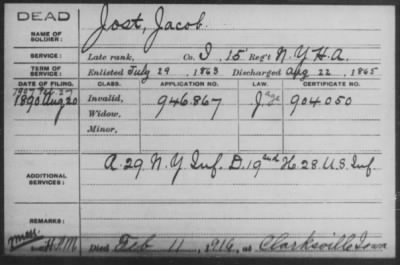 DEAD
NAME OF SOLDIER: Jost, Jacob
SERVICE: Late rank, Co. I, 15 Reg't N.Y.H.A.
TERM OF SERVICE: Enlisted July 29, 1863 Discharged Aug 22, 1865
DATE OF FILING. CLASS. APPLICATION NO. LAW. CERTIFICATE NO.
1907 27
1890 Aug 20 Invalid, 946.867 904.050
Widow,
Minor,
ADDITIONAL SERVICES: A. 29 N.Y. Inf. D. 19 H 28 U.S. Inf.
REMARKS:
Died Feb 11, 1916, at Clarksville Iowa